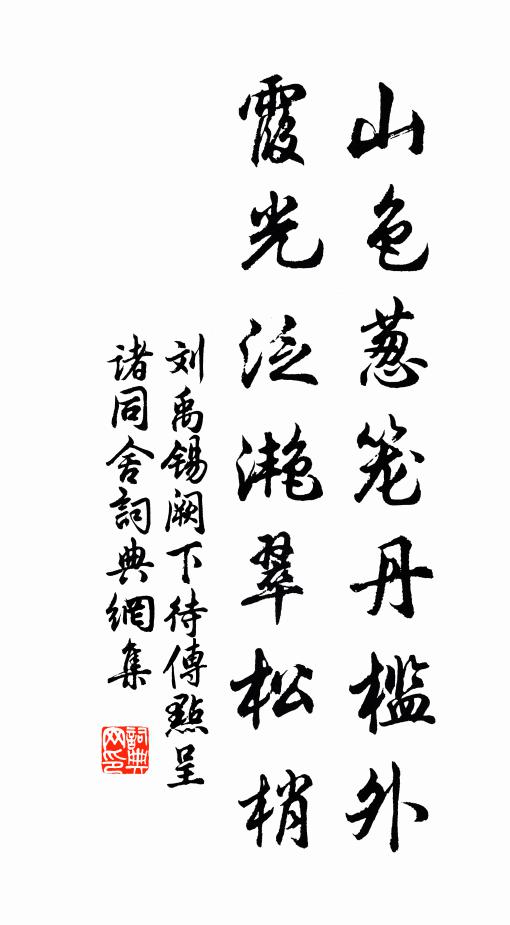 山色葱笼丹槛外
霞光泛滟翠松梢
刘禹锡阙下待傳點呈
诸同舍詞典網集
詞典
网印